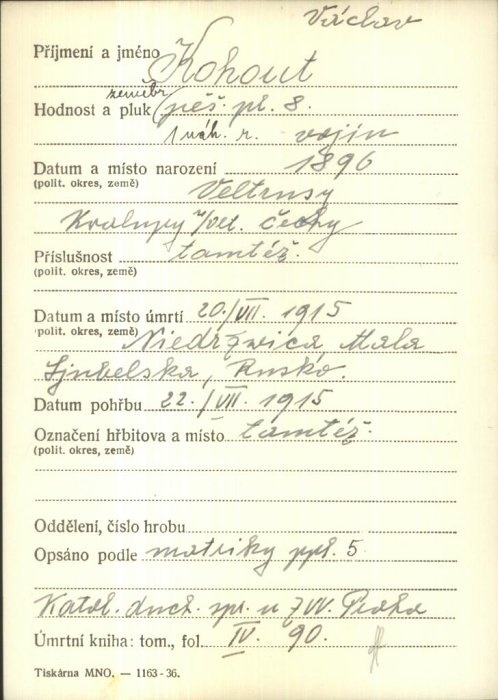 Václav
Příjmení a jméno Kohout
zeměbr.
Hodnost a pluk (pěš. pl. 8.
1 náh. r. vojín
Datum a místo narození 1896
(polit. okres, země) Veltrusy
Kralupy n/Vlt. Čechy
Příslušnost tamtéž.
(polit. okres, země)
Datum a místo úmrtí 20./VII. 1915
(polit. okres, země) Niedrzwica Mala
Ljubelska, Rusko.
Datum pohřbu 22./VII. 1915
Označení hřbitova a místo tamtéž.
(polit. okres, země)
Oddělení, číslo hrobu
Opsáno podle matriky ppl. 5.
Katol. duch. spr. u ZVV. Praha
Úmrtní kniha: tom., fol. IV. 90.
Tiskárna MNO. — 1163-36.